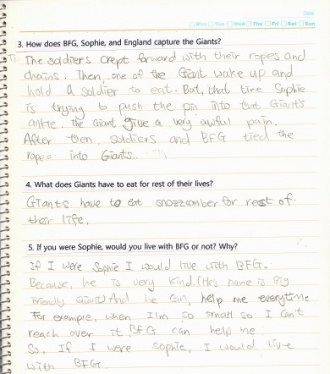 Date
3. How does BFG, Sophie, and England capture the Giants?
The soldiers crept forward with their ropes and
chains. Then, one of the Giant wake up and
hold a soldier to eat. But, that time Sophie
is trying to push the pin into that Giant's
ankle. The Giant give a very awful pain.
After then, soldiers and BFG tied the
ropes into Giants.
4. What does Giants have to eat for rest of their lives?
Giants have to eat snozzcamber for rest of
their life.
5. If you were Sophie, would you live with BFG or not? Why?
If I were Sophie I would live with BFG.
Because, he is very kind. (His name is Big
Friendly Giant) And he can, help me everytime
For example, when I'm so small so I can't
reach over it, BFG can help me
So, If I were Sophie, I would live
with BFG.